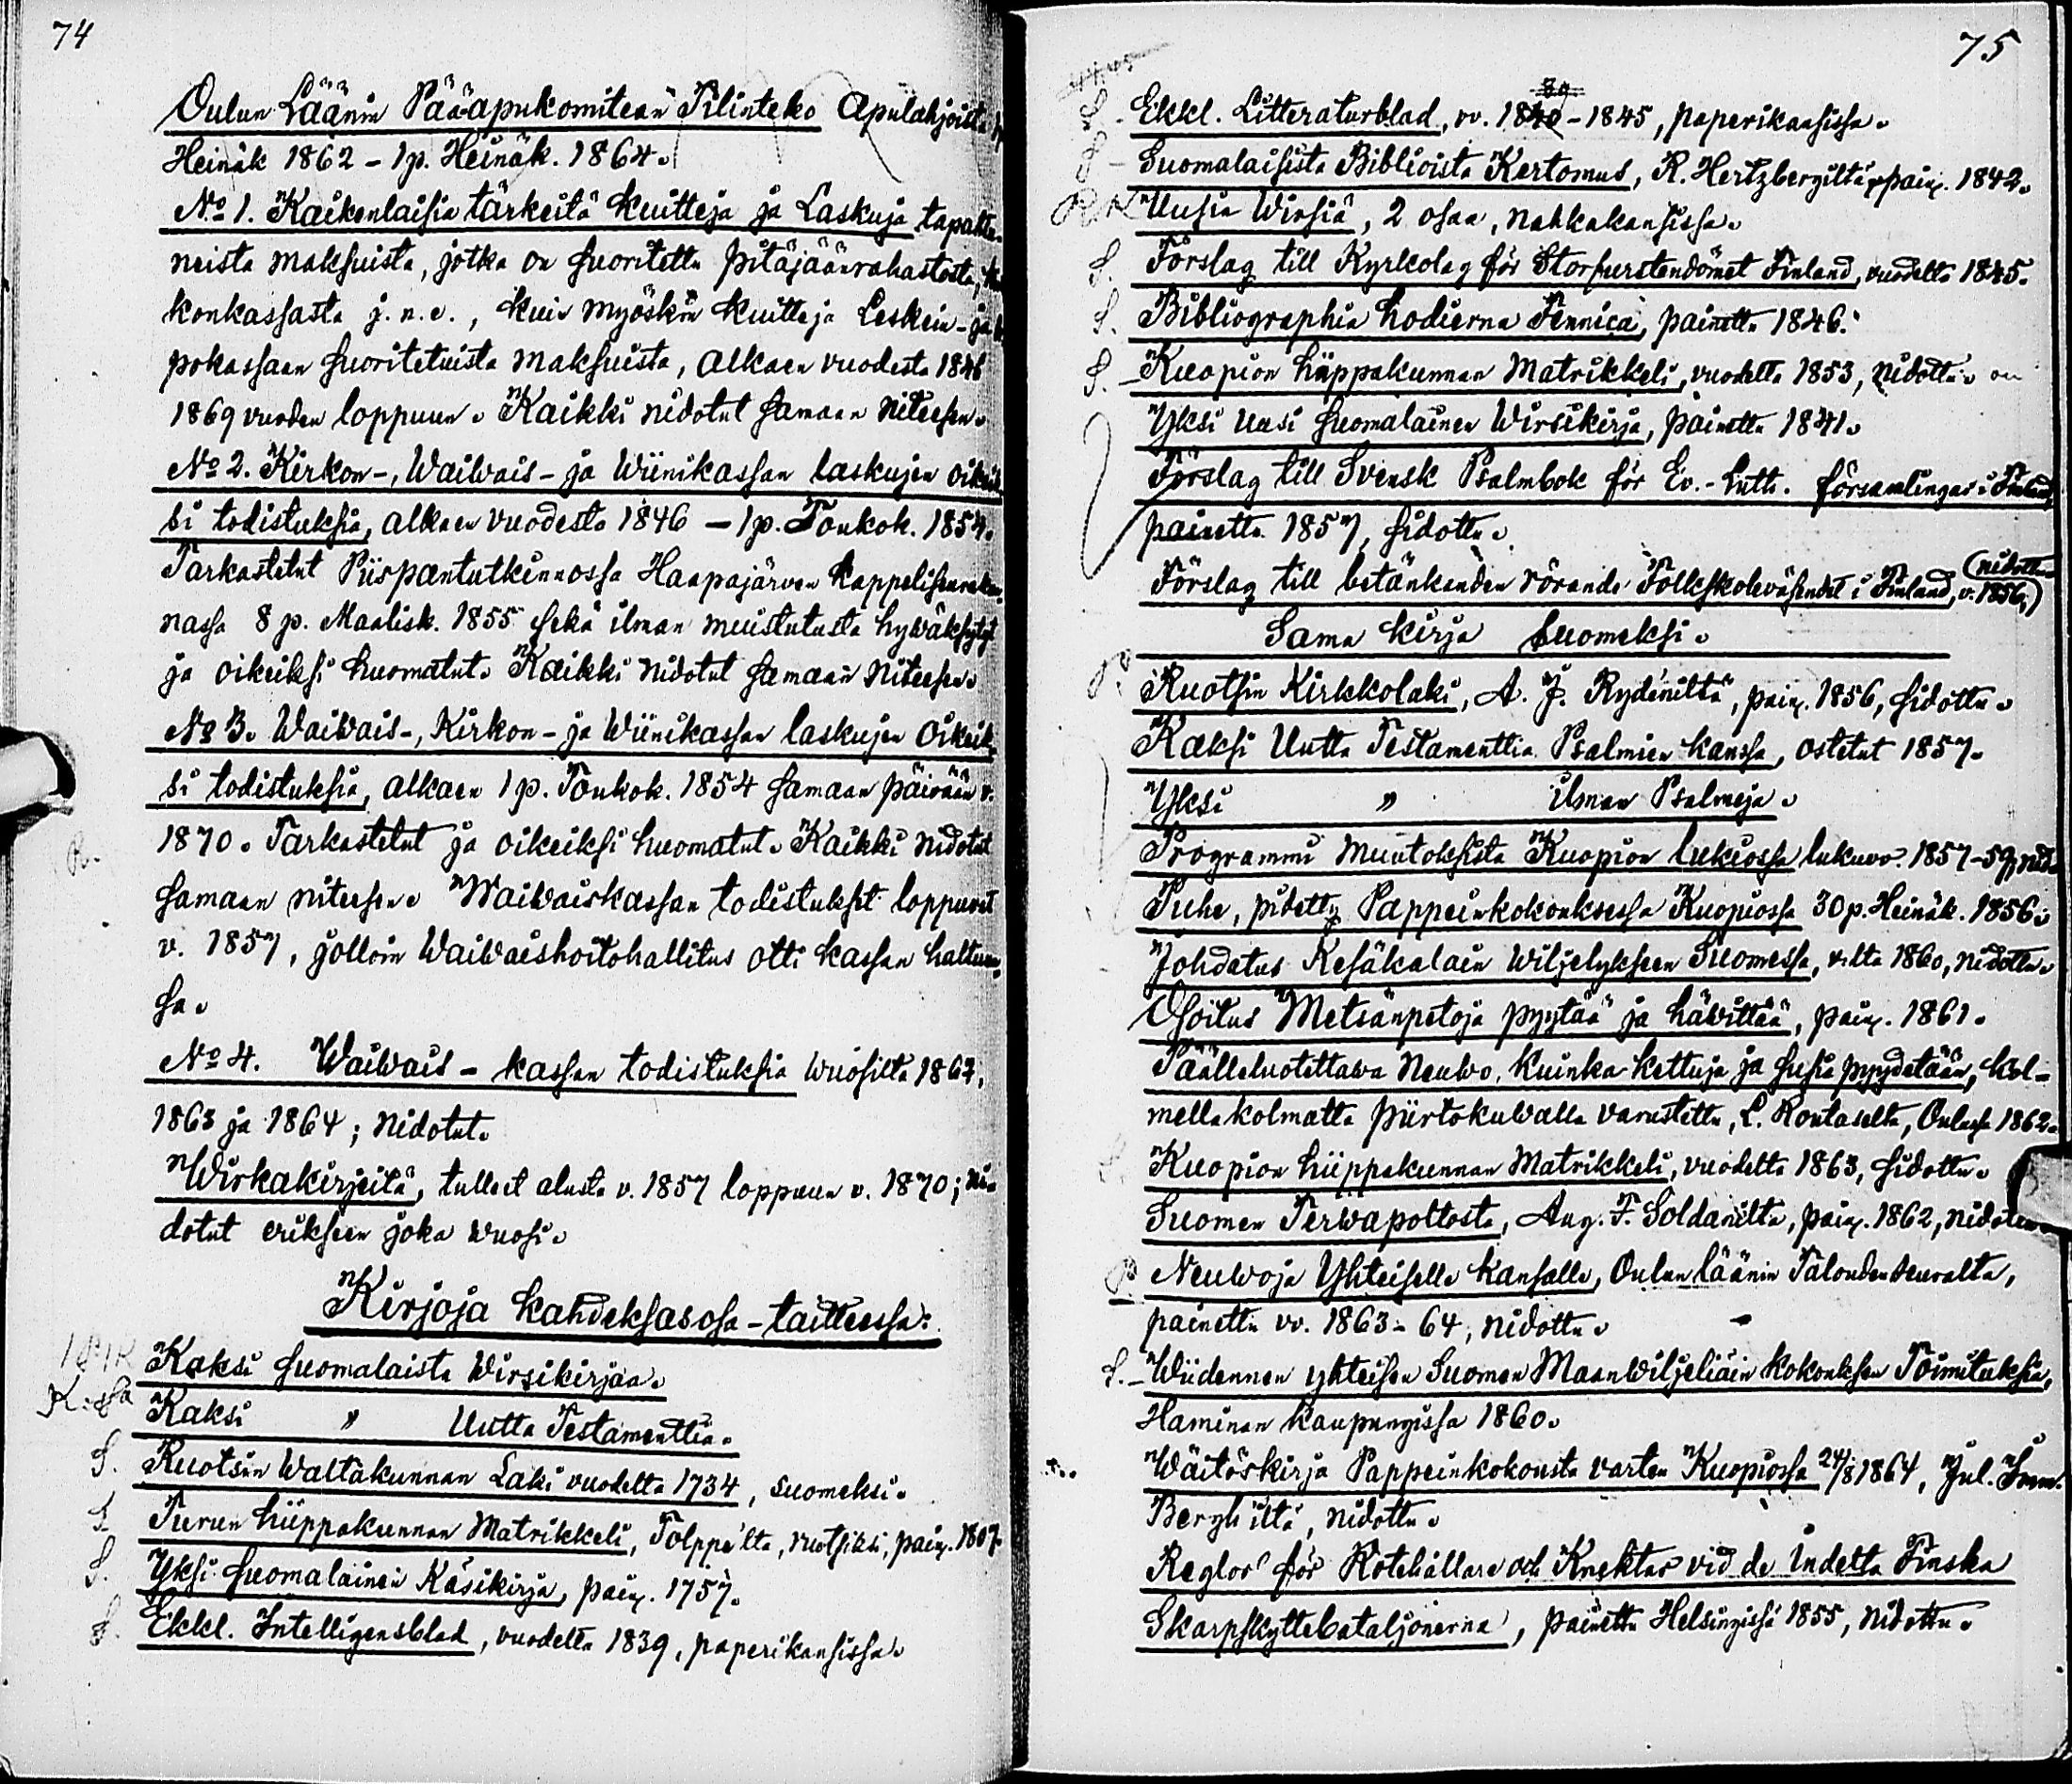 74
Oulun Läänin Pääapukomitean Tilinteko Apulahjoista
Heinäk 1862 – 1 p. Heinäk. 1864.
No 1. Kaikenlaisia tärkeitä kuitteja ja Laskuja tapahtu-
neista maksuista, jotka on suoritettu pitäjäänrahastosta,
konkassasta j.n.e., kuin myöskin kuitteja Leskein- ja
pokassaan suoritetuista maksuista, alkaen vuodesta 1846
1869 vuoden loppuun. Kaikki nidotut samaan niteesen.
No 2. Kirkon-, Waiwais- ja Wiinikassan laskujen oikeik-
si todistuksia, alkaen vuodesta 1846 – 1 p. Toukok. 1854.
Tarkastetut Piispantutkinnossa Haapajärven kappeliseurakun-
nassa 8 p. Maalisk. 1855 sekä ilman muistutusta hywäksytyt
ja oikeiksi huomatut. Kaikki nidotut samaan niteesen.
No 3. Waiwais-, Kirkon- ja Wiinikassan laskujen oikeik-
si todistuksia, alkaen 1 p. Toukok. 1854 samaan päivään v.
1870. Tarkastetut ja oikeiksi huomatut. Kaikki nidotut
R.
samaan niteesen. Waiwaiskassan todistukset loppuvat
v. 1857, jolloin Waiwaishoitohallitus otti kassan haltuun-
sa.
No 4. Waiwais-kassan todistuksia wuosilta 1867,
1863 ja 1864; nidotut.
Wirkakirjeitä, tulleet alusta v. 1857 loppuun v. 1870; ni-
dotut erikseen joka wuosi.
Kirjoja kahdeksasosa-taitteessa:
Kaksi suomalaista Wirsikirjaa.
K:ssa Kaksi " Uutta Testamenttia.
S. Ruotsin Waltakunnan Laki vuodelta 1734, suomeksi.
S. Turun hiippakunnan Matrikkeli, Tolppo'lta, ruotsiksi, pain. 1807.
S. Yksi suomalainen Käsikirja, pain. 1757.
S. Ekkl. Intelligensblad, vuodelta 1839, paperikansissa.
75
S. Ekkl. Litteraturblad, vv. 1840 39 – 1845, paperikansissa.
S – Suomalaisista Biblioista Kertomus, R. Hertzbergiltä, pain. 1842.
RK Uusia Wirsiä, 2 osaa, nahkakansissa.
S. Förslag till Kyrkolag för Storfurstendömet Finland, vuodelta 1845.
S. Bibliographia hodierna Fennica, painettu 1846.
S. – Kuopion hiippakunnan Matrikkeli, vuodelta 1853, nidottu. on
Yksi uusi suomalainen Wirsikirja, painettu 1841.
Förslag till Svensk Psalmbok för Ev.-Luth. församlingar i Finland,
painettu 1857, sidottu.
Förslag till betänkanden rörande Folkskoleväsendet i Finland, v. 1856. (nidottu)
Sama kirja suomeksi.
Ruotsin Kirkkolaki, A. J. Rydeniltä, pain. 1856, sidottu.
Kaksi Uutta Testamenttia Psalmien kanssa, ostetut 1857.
Yksi " ilman Psalmeja.
Programmi muutoksista Kuopion lukiossa lukuvv. 1857–59, nid.
Puhe, pidetty Pappeinkokouksessa Kuopiossa 30 p. Heinäk. 1856.
Johdatus Kesäkalain Wiljelykseen Suomessa, v:lta 1860, nidottu.
Osoitus Metsänpetoja pyytää ja häwittää, pain. 1861.
Päälleluotettawa Neuwo, kuinka kettuja ja susia pyydetään, kol-
mellakolmatta piirtokuwalla varustettu, L. Rontaselta, Oulussa 1862.
Kuopion hiippakunnan Matrikkeli, vuodelta 1863, sidottu.
Suomen Terwapoltosta, Aug. F. Soldanilta, pain. 1862, nidottu.
Neuwoja Yhteiselle kansalle, Oulun läänin Talouden seuralta,
painettu vv. 1863–64, nidottu.
S. – Wiidennen yhteisen Suomen Maanwiljeliäin kokouksen Toimituksia,
Haminan kaupungissa 1860.
Wäitöskirja Pappeinkokousta varten Kuopiossa 24/8 1864, Jul. Imm.
Bergh'iltä, nidottu.
Reglor för Rotehållare och Knektar vid de indelta Finska
Skarpskyttebataljonerna, painettu Helsingissä 1855, nidottu.